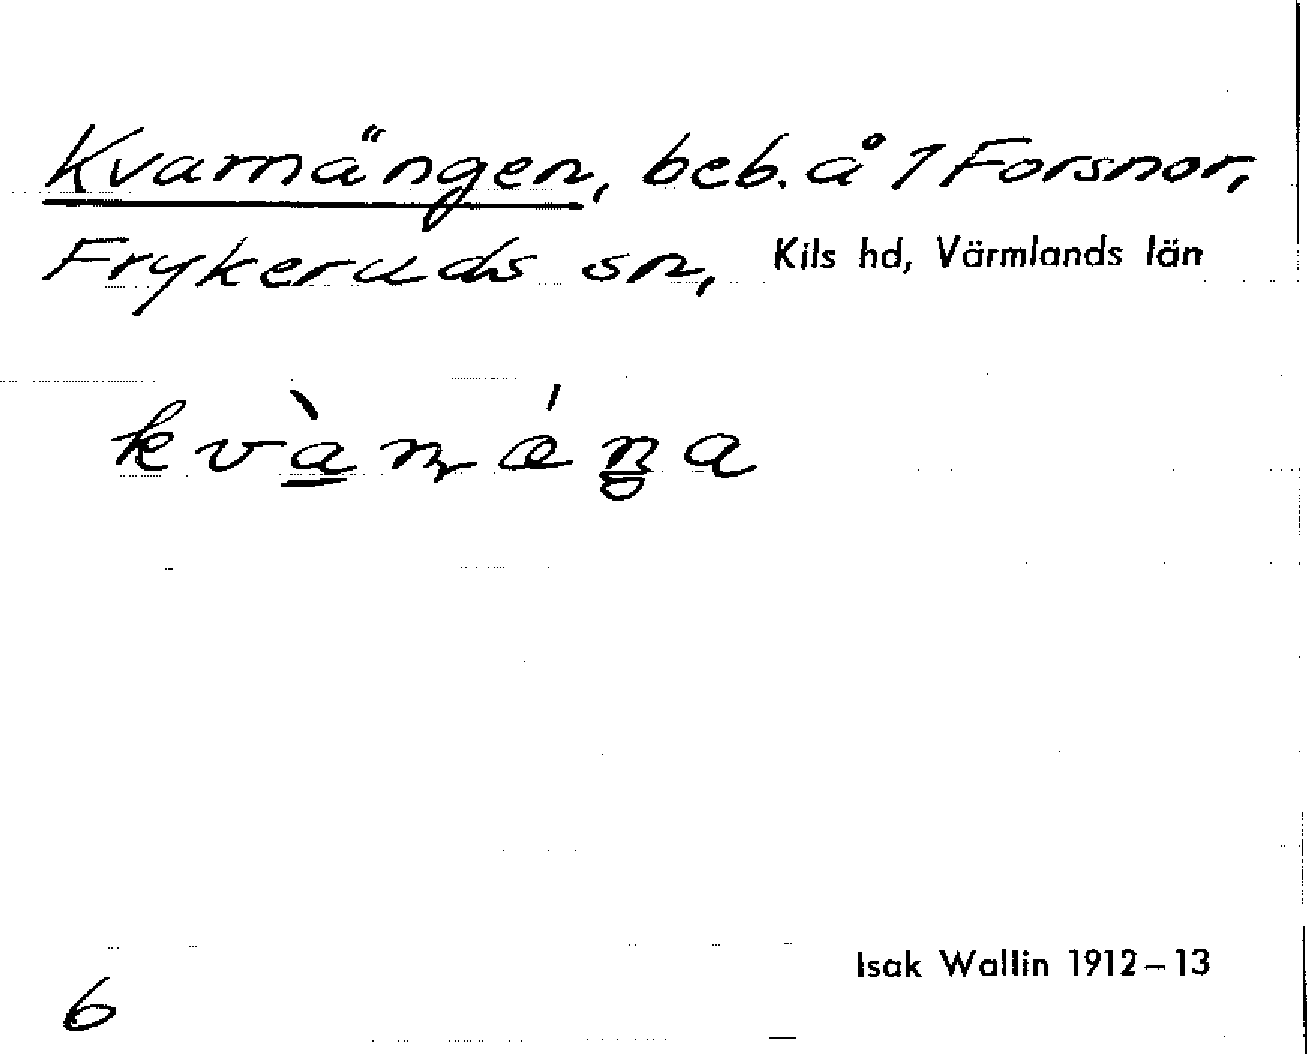 Kvarnängen, beb. å 1 Forsnor,
Frykeruds sn, Kils hd, Värmlands län
Isak Wallin 1912–13
6